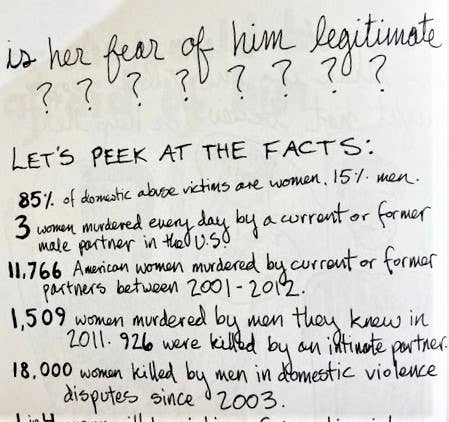 is her fear of him legitimate
? ? ? ? ? ? ? ?
LET'S PEEK AT THE FACTS:
85% of domestic abuse victims are women, 15% men.
3 women murdered every day by a current or former
male partner in the U.S.
11,766 American women murdered by current or former
partners between 2001-2012.
1,509 women murdered by men they knew in
2011. 926 were killed by an intimate partner.
18,000 women killed by men in domestic violence
disputes since 2003.